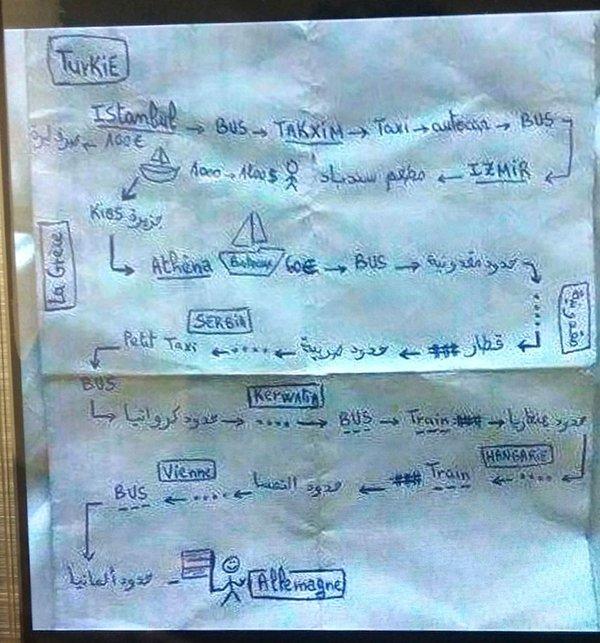 TURKIE
Istanbul → BUS → TAKXIM → Taxi → autocar → BUS
صرف ليرة ← 100€
1000 → 1200$ مطعم سندباد ← IZMIR
Kios جزيرة
La Grèce
Athéna 60€ → BUS → حدود مقدونية
SERBIA
Petit Taxi ← .... ← حدود صربية ← ### قطار
BUS
KERWATIA
حدود كرواتيا → .... → BUS → Train ### → حدود هنغاريا
HANGARIE
Vienne
BUS ← .... ← حدود النمسا ← ### Train ← ....
حدود ألمانيا
Allemagne